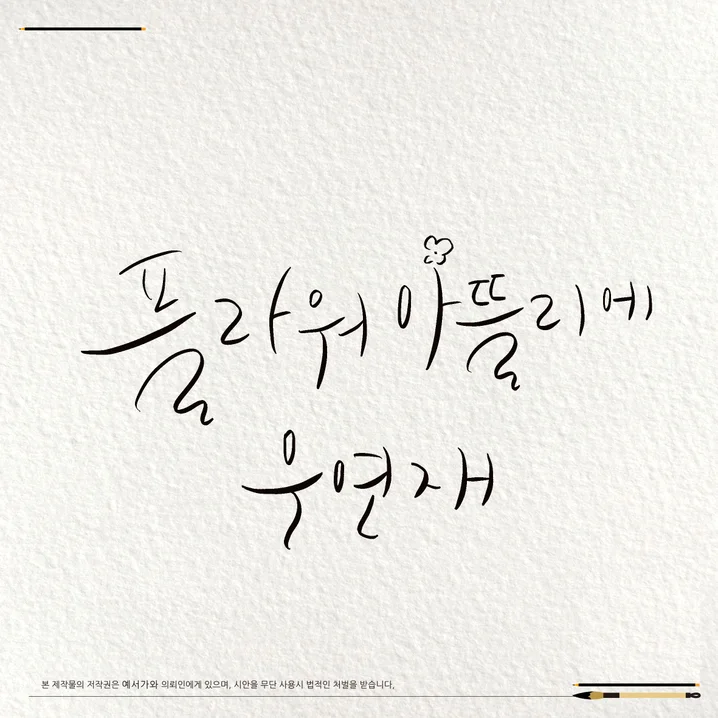 플라워 아뜰리에
우연재
본 제작물의 저작권은 예서가와 의뢰인에게 있으며, 시안을 무단 사용시 법적인 처벌을 받습니다.